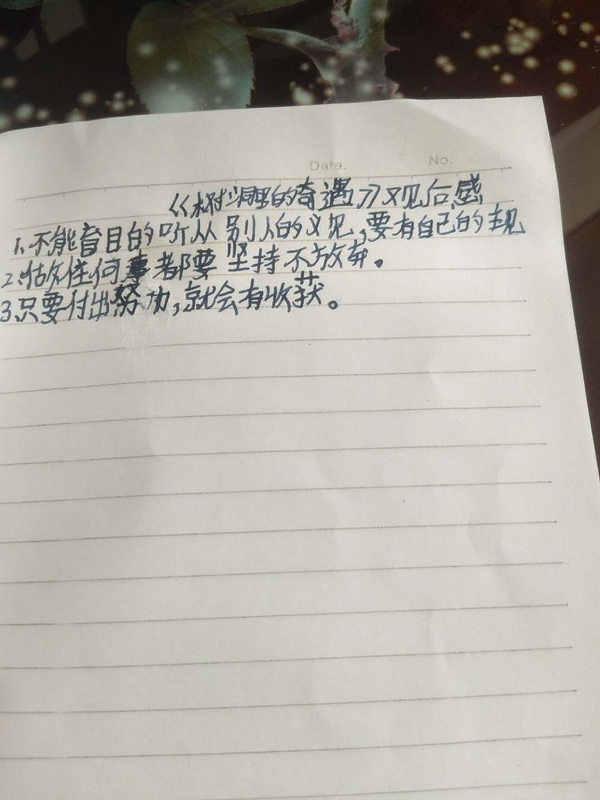 Date. No.
《树洞里的奇遇》观后感
1.不能盲目的听从别人的义见,要有自己的主见
2.做任何事都要坚持不放弃。
3.只要付出努力,就会有收获。